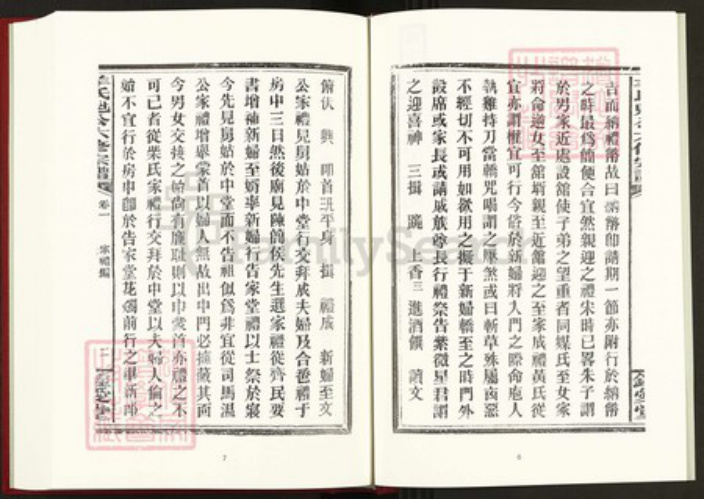 吉而納禮幣故曰納幣卽請期一節亦附行於納幣
之時最爲簡便合宜然親迎之禮朱時已畧朱子謂
於男家近處設舘使子弟之望重者同媒氏至女家
將命逆女至舘壻親至近舘迎之至家成禮黃氏從
宜亦謂權宜可行今俗於新婦將入門之際命庖人
執雞持刀當轎咒喝謂之壓煞或曰斬草殊屬凶惡
不經切不可用如欲用之擬于新婦轎至之時門外
設席或家長或請戚族尊長行禮祭告紫微星君謂
之迎喜神 三揖 跪 上香三 進酒饌 讀文
6
俯伏 興 叩首三 平身 揖 禮成 新婦至文
公家禮見舅姑於中堂行交拜成夫婦及合巹禮于
房中三日然後廟見陳鶴侯先生選家禮從齊民要
書增補新婦至婿率新婦行告家堂禮以士祭於寢
今先見舅姑於中堂而不告祖似爲非宜從司馬溫
公家禮增舉家首以婦人無故出中門必擁蔽其面
今男女交接之始尚有廉恥則以巾蒙首亦禮之不
可已者從柴氏家禮行交拜於中堂以夫婦人倫之
始不宜行於房中卽於告家堂花燭前行之畢新郎
卷一 家禮編
7
FamilySearch